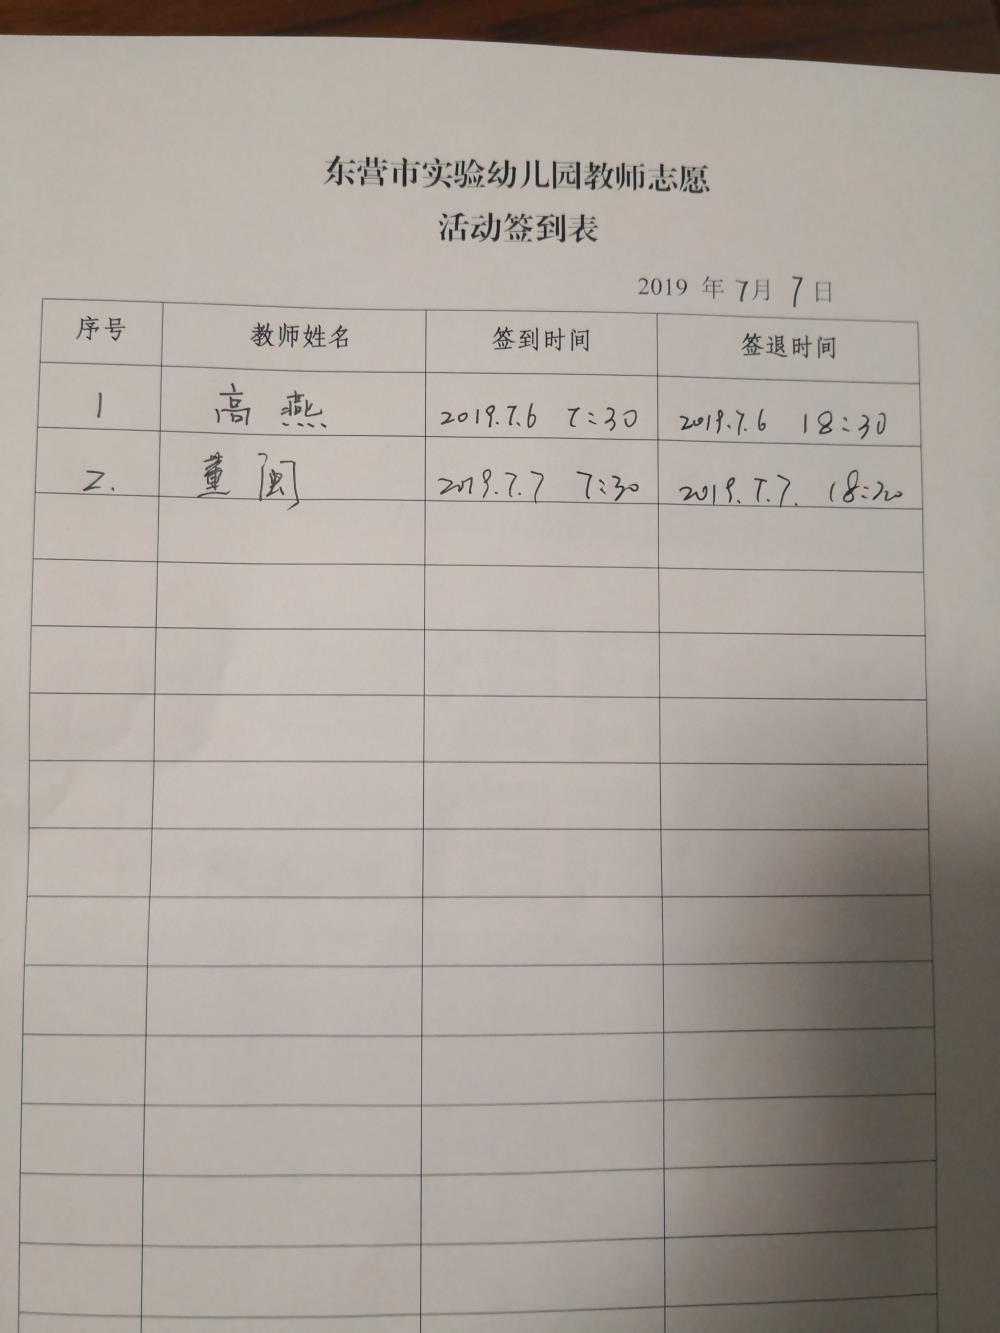 东营市实验幼儿园教师志愿
活动签到表
2019 年 7月 7日
序号 教师姓名 签到时间 签退时间
1 高燕 2019.7.6 7:30 2019.7.6 18:30
2. 董闽 2019.7.7 7:30 2019.7.7. 18:30